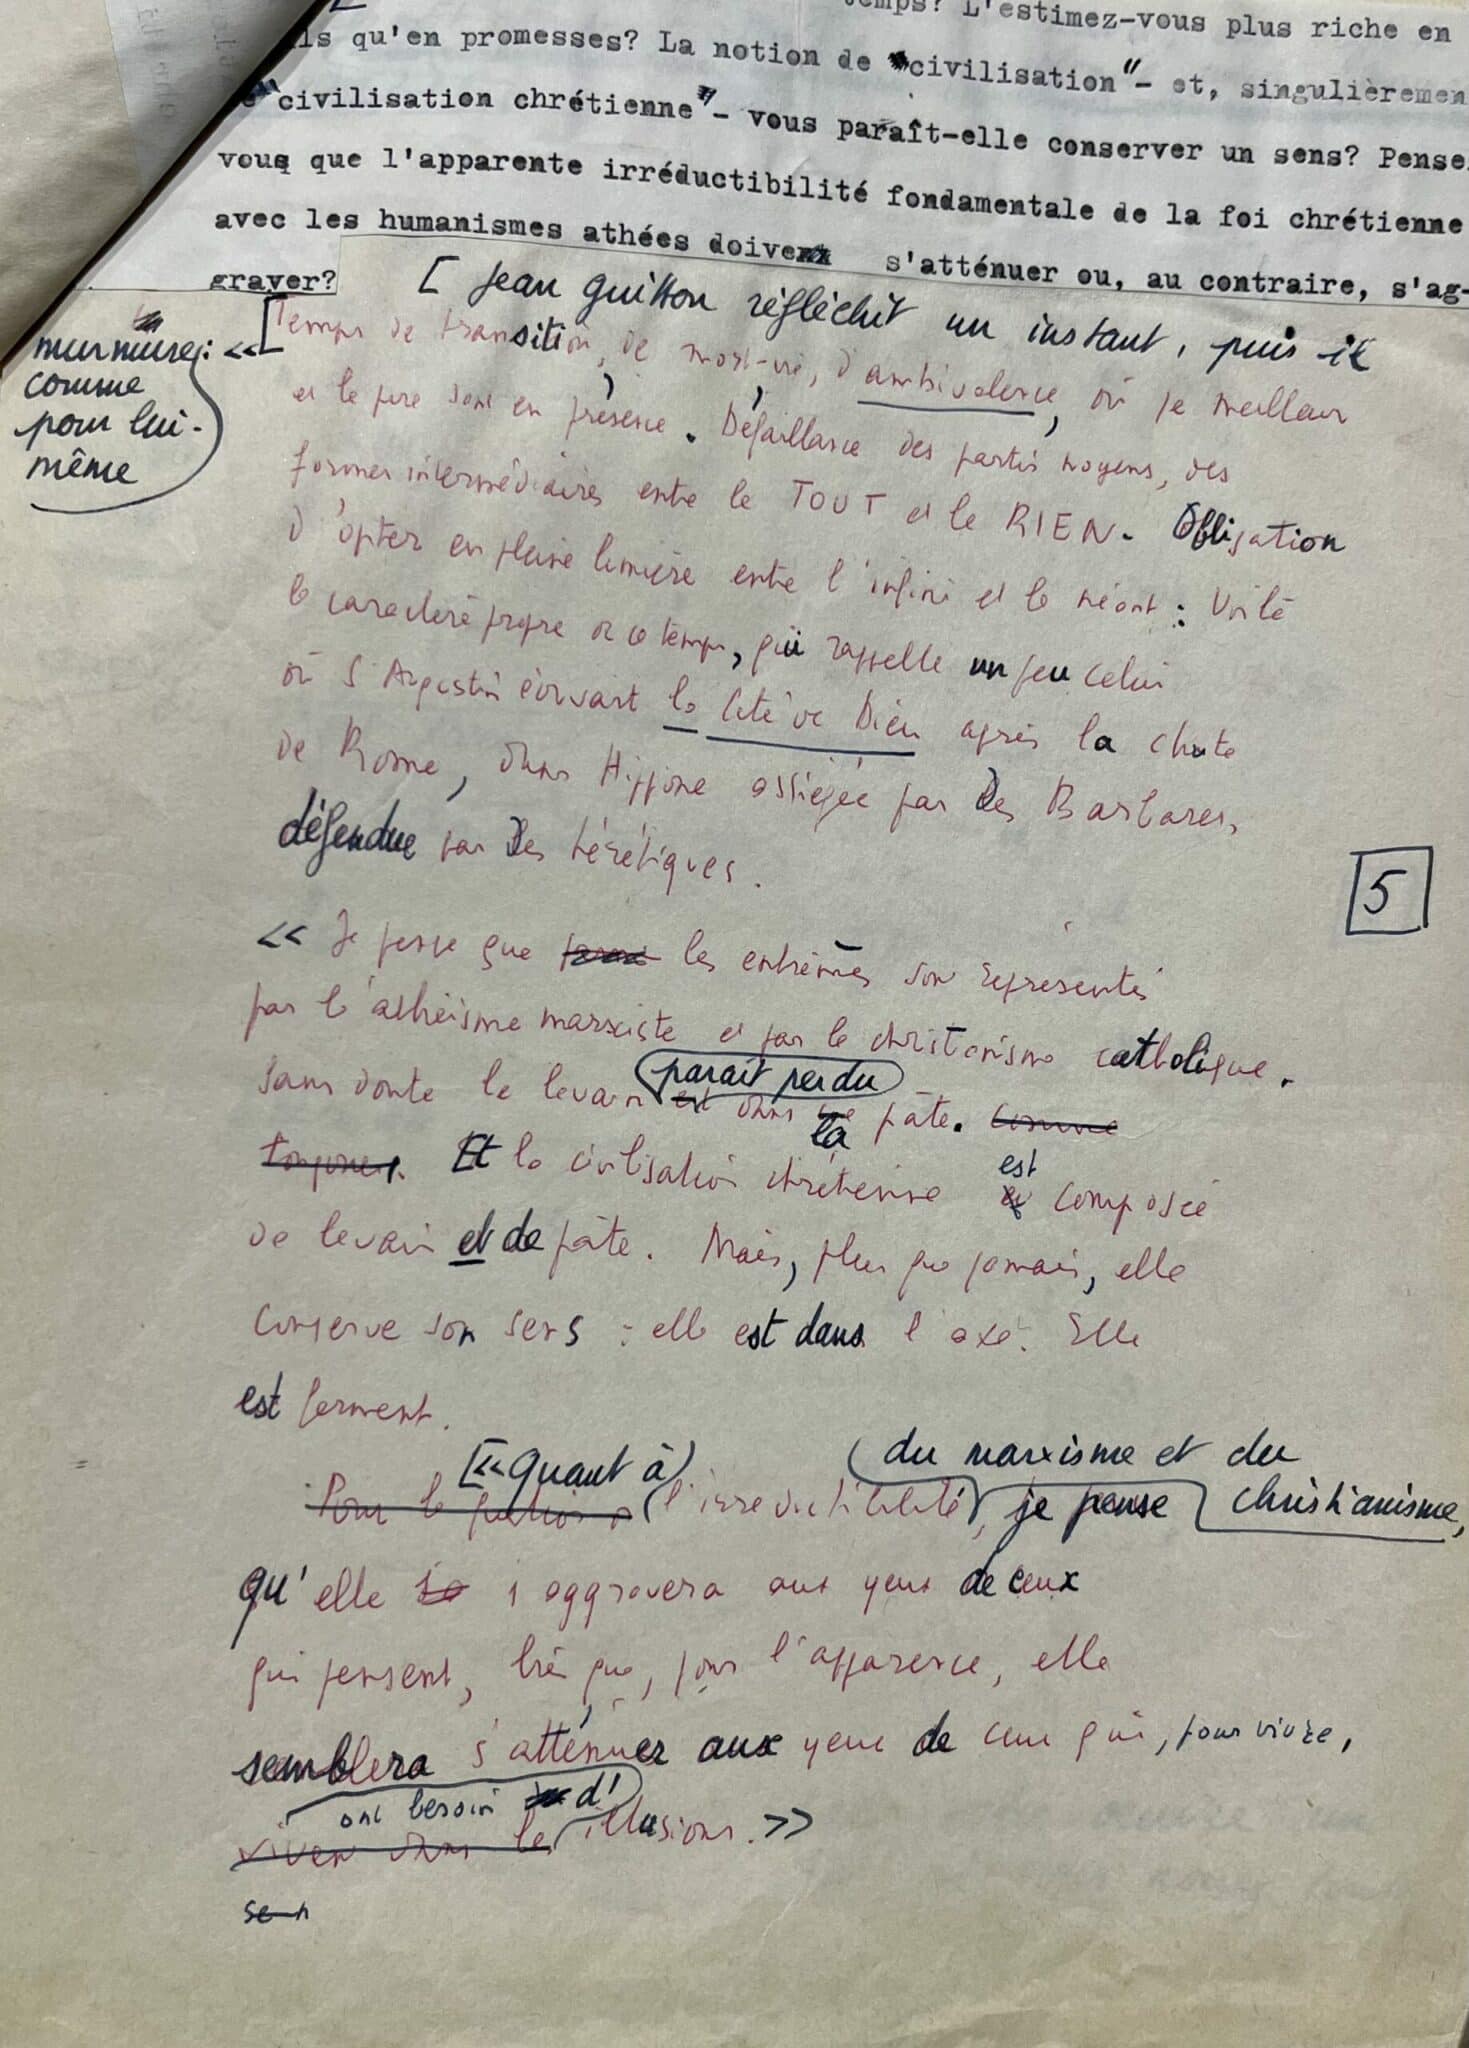 temps? L'estimez-vous plus riche en
qu'en promesses? La notion de "civilisation" - et, singulièremen
"civilisation chrétienne" - vous paraît-elle conserver un sens? Pense
vous que l'apparente irréductibilité fondamentale de la foi chrétienne
avec les humanismes athées doivent s'atténuer ou, au contraire, s'ag-
graver?
[ Jean Guitton réfléchit un instant, puis il
murmure: <<
comme
pour lui-
même
[Temps de transition, de mort-vie, d'ambivalence, où le meilleur
et le pire sont en présence. Défaillance des partis moyens, des
formes intermédiaires entre le TOUT et le RIEN. Obligation
d'opter en pleine lumière entre l'infini et le néant : Voilà
le caractère propre de ce temps, qui rappelle un peu celui
où S Augustin écrivait la Cité de Dieu après la chute
de Rome, dans Hippone assiégée par des Barbares,
défendue par des hérétiques.
5
<< Je pense que les extrêmes sont représentés
par l'athéisme marxiste et par le christianisme catholique.
paraît perdu
Sans doute le levain est dans la pâte. comme
toujours. Et la civilisation chrétienne est composée
de levain et de pâte. Mais, plus que jamais, elle
conserve son sens : elle est dans l'axe. Elle
est ferment.
[<< Quant à du marxisme et du
Pour la question de l'irréductibilité, je pense christianisme,
qu'elle s'aggravera aux yeux de ceux
qui pensent, bien que, pour l'apparence, elle
semblera s'atténuer aux yeux de ceux qui, pour vivre,
ont besoin d'
vivent dans les illusions. >>
sen